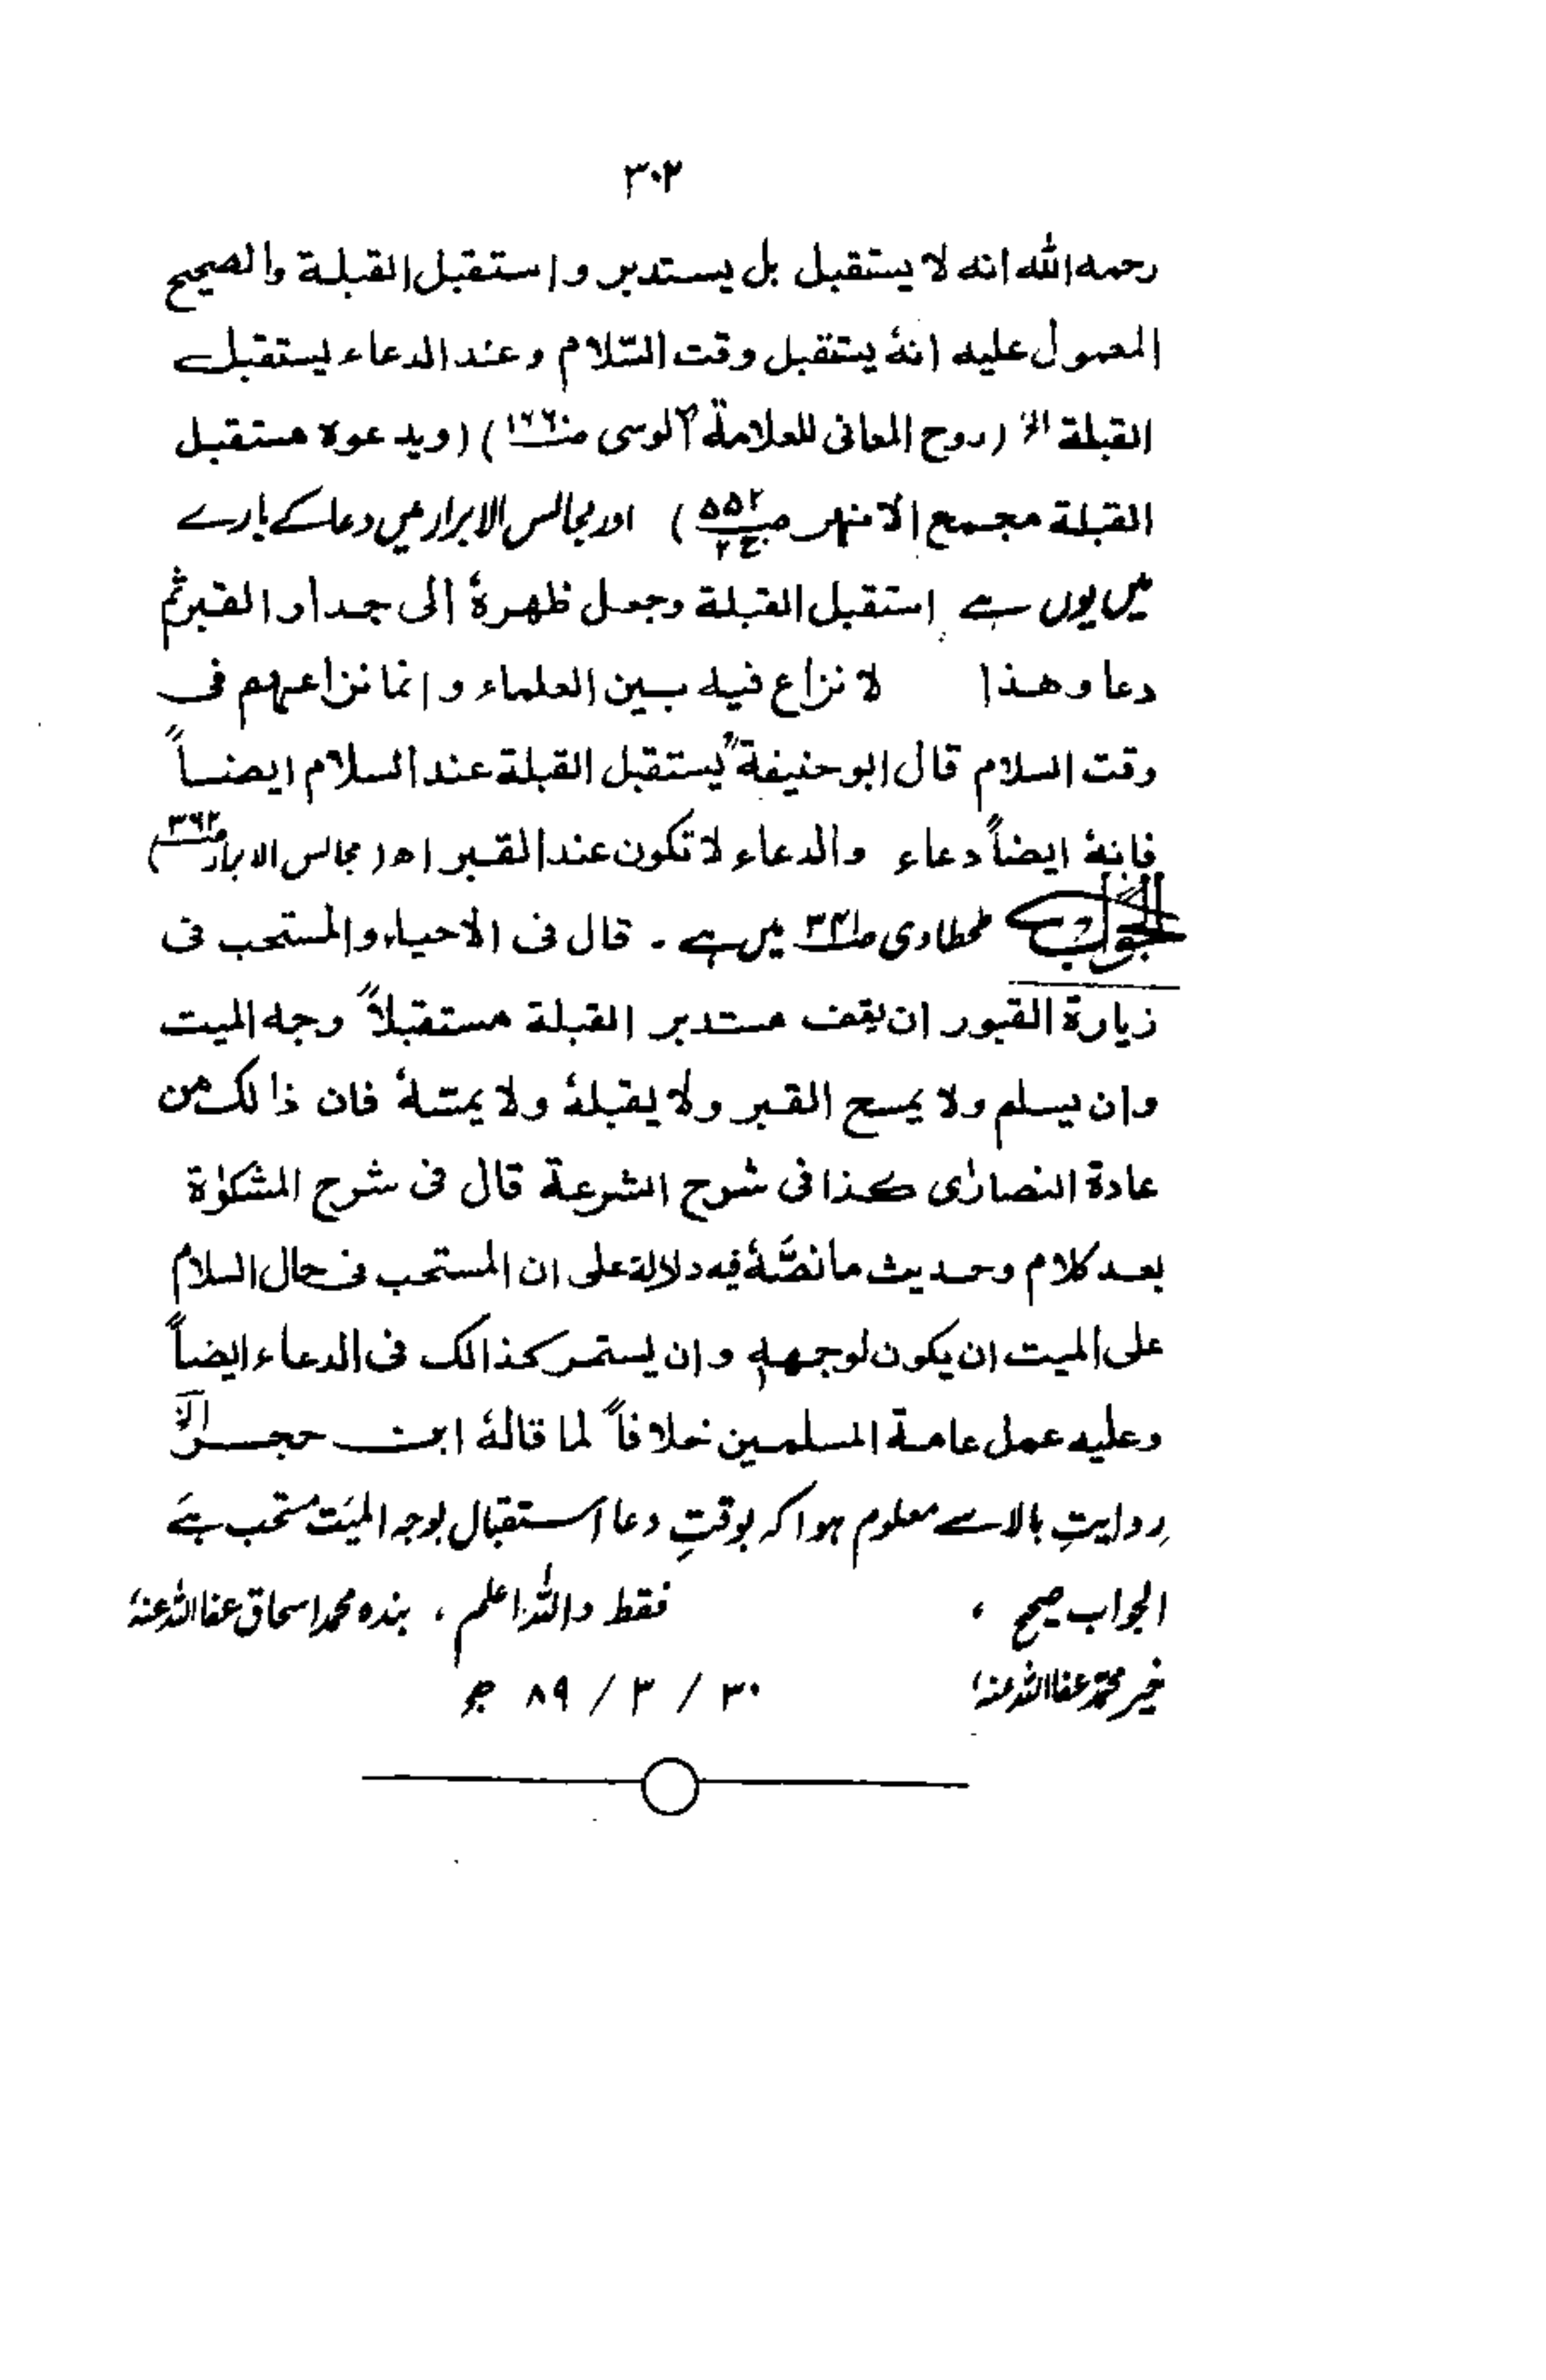 ۳۰۲
رحمه الله انه لا يستقبل بل يستدبر و استقبل القبلة والصحيح
المعمول عليه انهٗ يستقبل وقت السّلام وعند الدعاء يستقبل
القبلة الخ (روح المعانى للعلامة آلوسى) (ويدعوه مستقبل
القبلة مجمع الانهر ص۵۵۲ ج۲) اور مجالس الابرار میں دعا کے بارے
میں یوں ہے استقبل القبلة وجعل ظهرهٗ الى جدار القبر ثم
دعا وهذا لا نزاع فيه بين العلماء و انما نزاعهم فى
وقت السلام قال ابو حنيفةؒ يستقبل القبلة عند السلام ايضاً
فانهٗ ايضاً دعاء والدعاء لا تكون عند القبر اھ (مجالس الابرار ص۳۶۲)
الجواب طحطاوی ص۳۴۱ میں ہے ۔ قال فى الاحياء والمستحب فى
زيارة القبور ان يقف مستدبر القبلة مستقبلاً وجه الميت
وان يسلم ولا يمسح القبر ولا يقبلهٗ ولا يمسهٗ فان ذالك من
عادة النصارٰى كذا فى شرح الشرعة قال فى شرح المشكوٰة
بعد كلام وحديث ما نصّهٗ فيه دلالة على ان المستحب فى حال السلام
على الميت ان يكون لوجههٖ و ان يستمر كذالك فى الدعاء ايضاً
وعليه عمل عامة المسلمين خلافاً لما قالهٗ ابن حجر الخ
روایتِ بالا سے معلوم ہوا کہ بوقتِ دعا استقبال بوجہ المیّت مستحب ہے
الجواب صحیح ، فقط واللہ اعلم ، بندہ محمد اسحاق عفا اللہ عنہٗ
خیر محمد عفا اللہ عنہٗ ۳۰ / ۳ / ۸۹ ھ